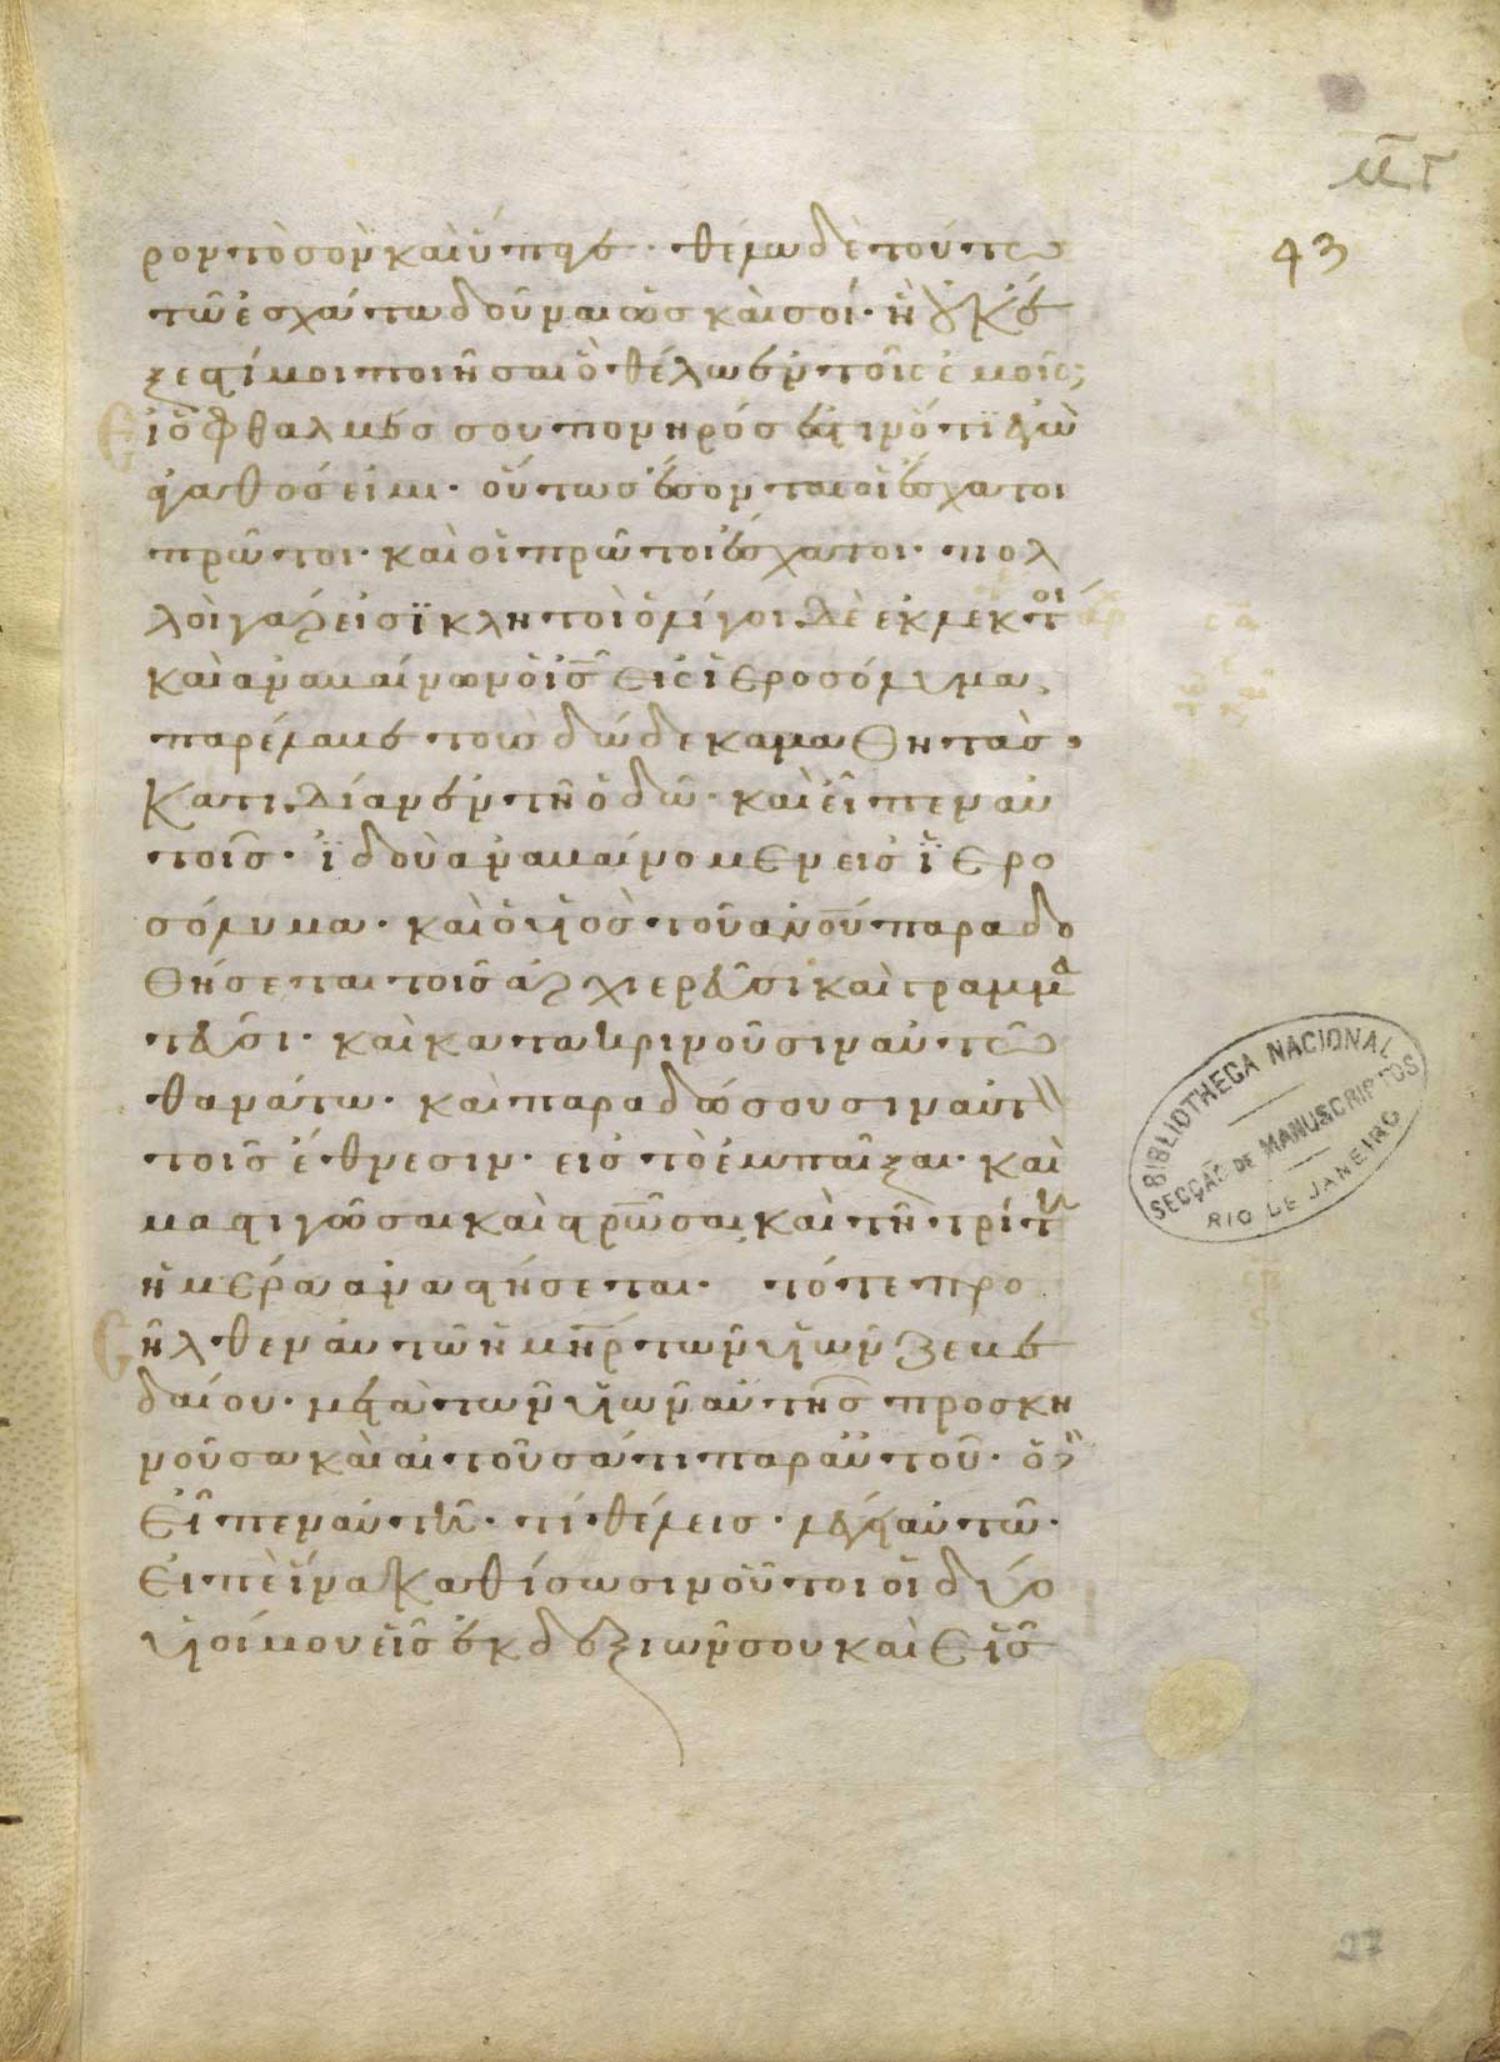 μγ
43
ρον τὸ σὸν καὶ ὕπαγε· θέλω δὲ τούτω
τῶ ἐσχάτω δοῦναι ὡς καὶ σοί· ἢ οὐκ ἔ
ξεστί μοι ποιῆσαι ὃ θέλω ἐν τοῖς ἐμοῖς;
εἰ ὁ ὀφθαλμός σου πονηρός ἐστιν ὅτι ἐγὼ
ἀγαθός εἰμι· οὕτως ἔσονται οἱ ἔσχατοι
πρῶτοι· καὶ οἱ πρῶτοι ἔσχατοι· πολ
λοὶ γάρ εἰσϊ κλητοὶ ὀλίγοι δὲ ἐκλεκτοὶ
καὶ ἀναβαίνων ὁ ι̅ς̅ εἰς ἱεροσόλυμα,
παρέλαβε τοὺς δώδεκα μαθητὰς,
κατιδίαν ἐν τῆ ὁδῶ· καὶ εἶπεν αὐ
τοῖς· ἰδοὺ ἀναβαίνομεν εἰς ἱερο
σόλυμα· καὶ ὁ υἱὸς τοῦ α̅ν̅ο̅υ̅ παραδο
θήσεται τοῖς ἀρχιερεῦσι καὶ γραμμα
τεῦσι· καὶ κατακρινοῦσιν αὐτὸ
θανάτω· καὶ παραδώσουσιν αὐτ
τοῖς ἔθνεσιν· εἰς τὸ ἐμπαῖξαι· καὶ
μαστιγῶσαι καὶ σ̅ρ̅ῶσαι, καὶ τῆ τρίτη
ἡμέρα ἀναστήσεται· τότε προ
ῆλθεν αὐτῶ ἡ μ̅η̅ρ̅ τῶν υἱῶν ζεβε
δαίου· μετὰ τῶν υἱῶν αὐτῆς προσκη
νοῦσα καὶ αἰτοῦσά τι παρ αὐτοῦ· ὁ δὲ
εἶπεν αὐτῆ· τί θέλεις· λέγει αὐτῶ·
εἰπὲ ἵνα καθίσωσιν οὗτοι οἱ δύο
υἱοί μου εἷς ἐκ δεξιῶν σου καὶ εἷς
BIBLIOTHECA NACIONAL
SECÇÃO DE MANUSCRIPTOS
RIO DE JANEIRO
27